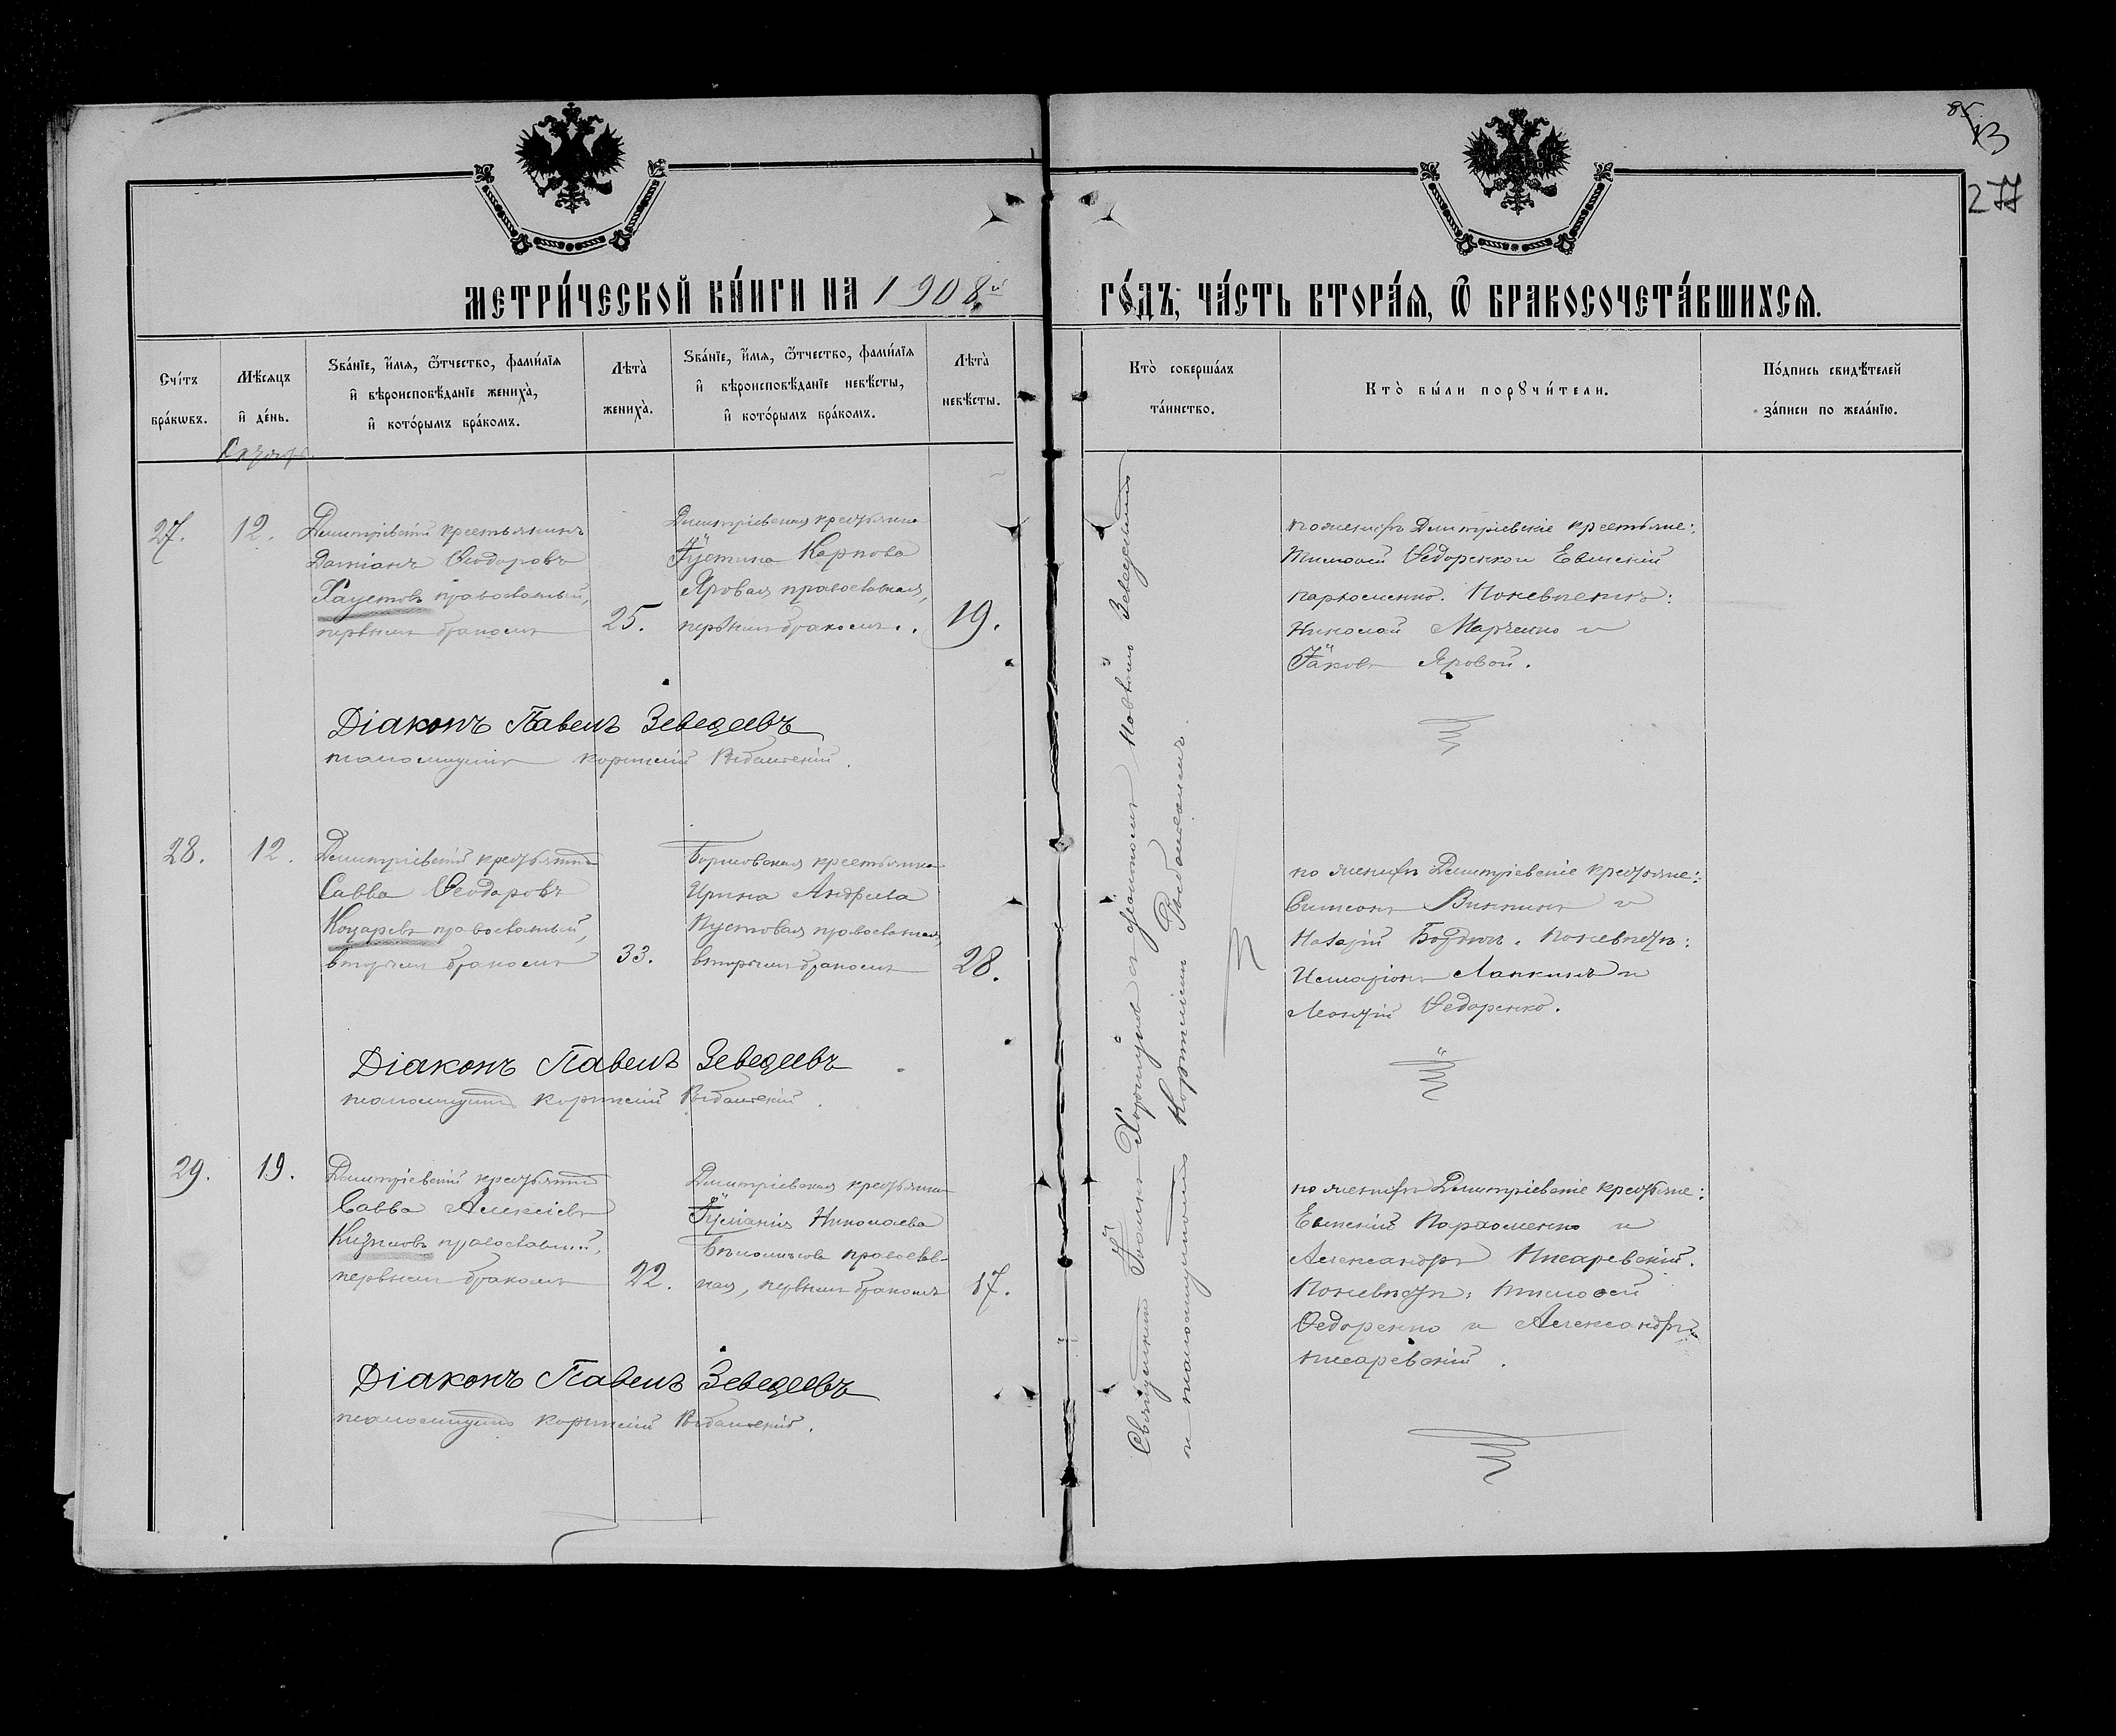 85
13
277
МЕТРИ́ЧЕСКОЙ КНИ́ГИ НА 1908й ГО́ДЪ, ЧА́СТЬ ВТОРА́Я, Ѿ БРАКОСОЧЕТА́ВШИХСЯ.
Сче́тъ бра́кѡвъ.
Мѣ́сяцъ и де́нь.
Зва́нїе, и́мя, ѻ҆́тчество, фами́лїя и вѣроисповѣ́данїе жениха̀, и кото́рымъ бра́комъ.
Лѣта̀ жениха̀.
Зва́нїе, и́мя, ѻ҆́тчество, фами́лїя и вѣроисповѣ́данїе невѣ́сты, и кото́рымъ бра́комъ.
Лѣта̀ невѣ́сты.
Кто̀ соверша́лъ та́инство.
Кто̀ бы́ли порꙋчи́тели.
По́дпись свидѣ́телей за́писи по жела́нїю.
Октябрь
27.
12.
Дмитріевскій крестьянинъ
Даміанъ Ѳеодоровъ
Фаустовъ православный,
первымъ бракомъ
25.
Дмитріевская крестьянка
Іустина Карпова
Яровая православная,
первымъ бракомъ.
19.
по женихѣ Дмитріевскіе крестьяне:
Тимоѳей Ѳедоренко и Евменій
Пархоменко. По невѣстѣ:
Николай Марченко и
Іаковъ Яровой.
Діаконъ Павелъ Зеведеевъ
псаломщикъ Корнилій Рыбалскій.
28.
12.
Дмитріевскій крестьянинъ
Савва Ѳеодоровъ
Коцаревъ православный,
вторымъ бракомъ
33.
крестьянка
Ирина Андреева
Пустовая православная,
вторымъ бракомъ
28.
по женихѣ Дмитріевскіе крестьяне:
Симеонъ и
Назарій По невѣстѣ:
Иларіонъ Лапкинъ и
Леонтій Ѳедоренко.
Діаконъ Павелъ Зеведеевъ
псаломщикъ Корнилій Рыбалскій.
29.
19.
Дмитріевскій крестьянинъ
Савва Алексіевъ
Кизимовъ православный,
первымъ бракомъ
22.
Дмитріевская крестьянка
Іуліанія Николаева
православ-
ная, первымъ бракомъ
17.
по женихѣ Дмитріевскіе крестьяне:
Евменій Пархоменко и
Александръ Писаревскій.
По невѣстѣ: Тимоѳей
Ѳедоренко и Александръ
Писаревскій.
Діаконъ Павелъ Зеведеевъ
псаломщикъ Корнилій Рыбалскій.
Священникъ Іоаннъ съ діакономъ Павломъ Зеведеевымъ
и псаломщикомъ Корниліемъ